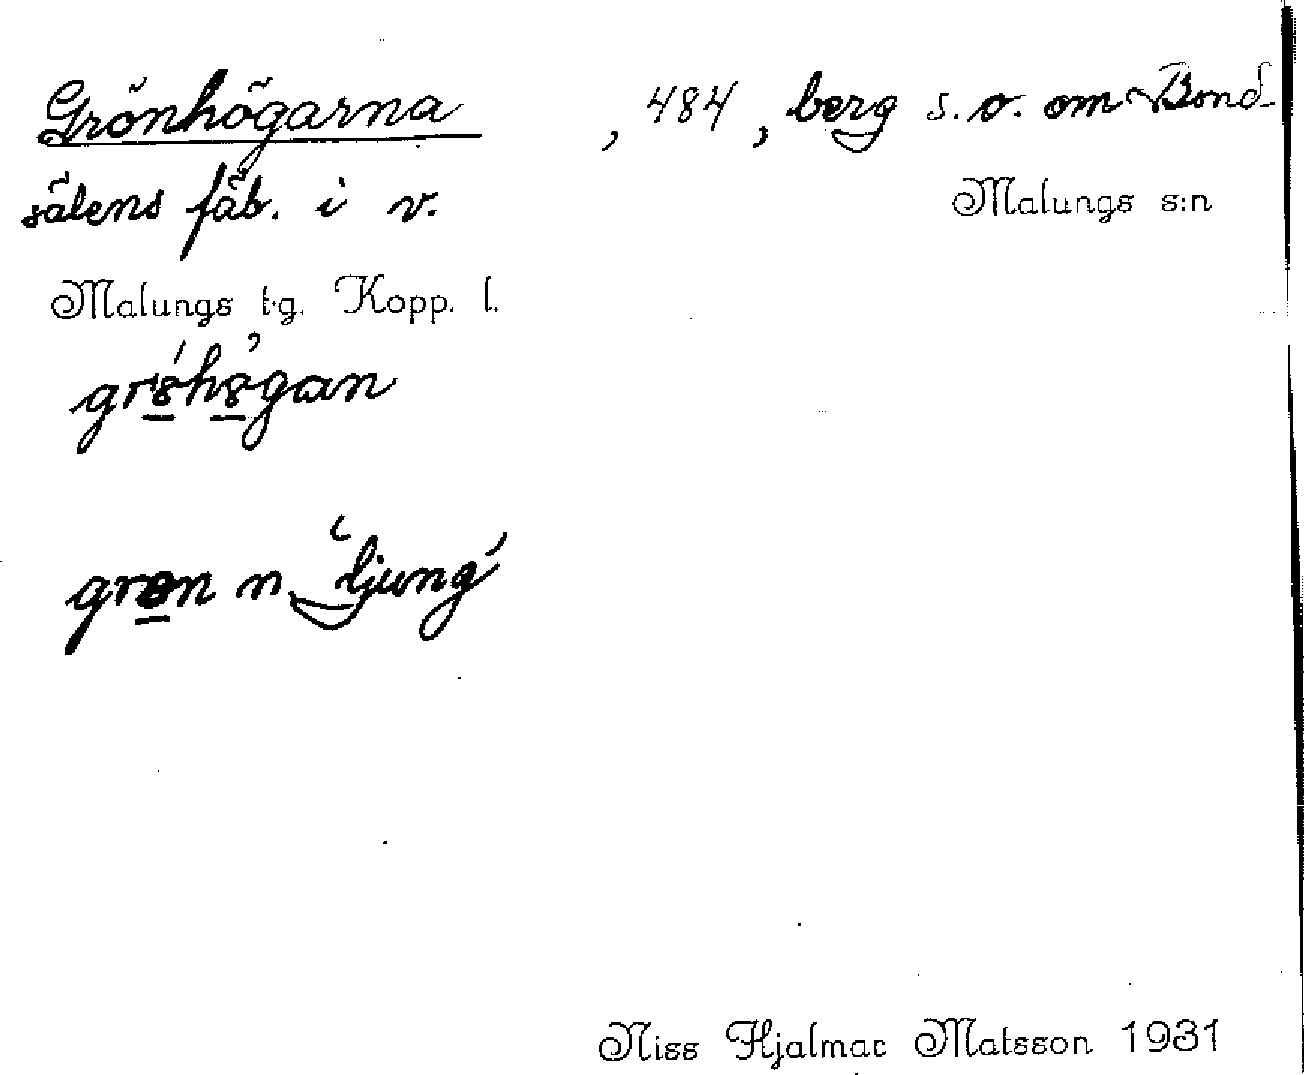 Grönhögarna , 484, berg s.o. om Bond-
sälens fäb. i v. Malungs s:n
Malungs t.g. Kopp. l.
gron n. 'ljung'
Niss Hjalmar Matsson 1931